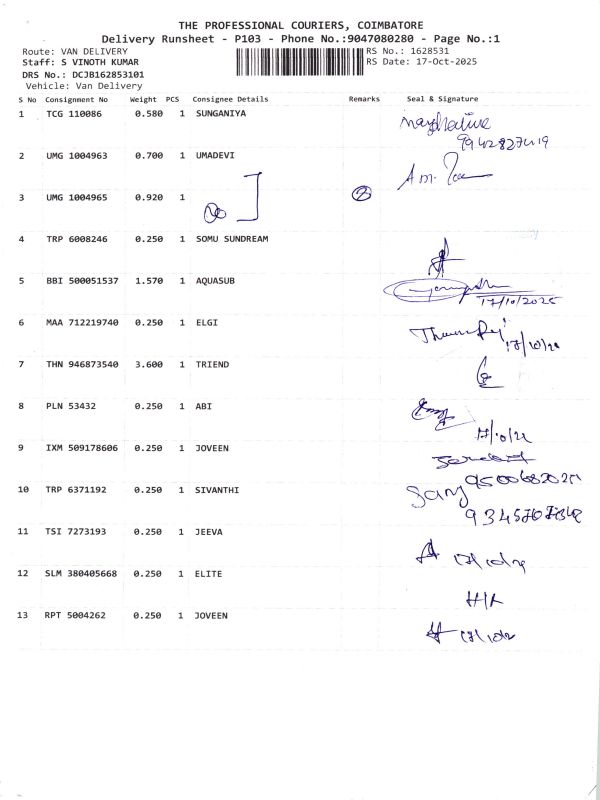 THE PROFESSIONAL COURIERS, COIMBATORE
Delivery Runsheet - P103 - Phone No.:9047080280 - Page No.:1
Route: VAN DELIVERY
RS No.: 1628531
Staff: S VINOTH KUMAR
RS Date: 17-Oct-2025
DRS No.: DCJB162853101
Vehicle: Van Delivery
S No Consignment No Weight PCS Consignee Details Remarks Seal & Signature
1 TCG 110086 0.580 1 SUNGANIYA
2 UMG 1004963 0.700 1 UMADEVI
3 UMG 1004965 0.920 1 2
4 TRP 6008246 0.250 1 SOMU SUNDREAM
5 BBI 500051537 1.570 1 AQUASUB
17/10/2025
6 MAA 712219740 0.250 1 ELGI
7 THN 946873540 3.600 1 TRIEND
8 PLN 53432 0.250 1 ABI
9 IXM 509178606 0.250 1 JOVEEN
10 TRP 6371192 0.250 1 SIVANTHI
11 TSI 7273193 0.250 1 JEEVA
12 SLM 380405668 0.250 1 ELITE
13 RPT 5004262 0.250 1 JOVEEN